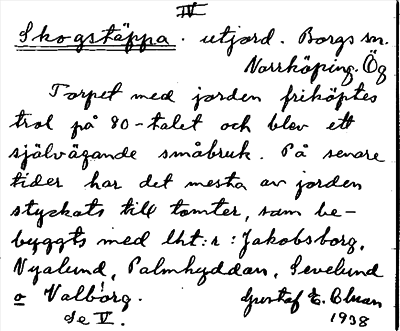 IV
Skogstäppa. utjord. Borgs sn.
Norrköping. Ög
Torpet med jorden friköptes
trol på 80-talet och blev ett
självägande småbruk. På senare
tider har det mesta av jorden
styckats till tomter, som be-
byggts med lht:r: Jakobsborg,
Nyalund, Palmhyddan, Sevelund
o Valborg. Gustaf E. Olsson
Se V. 1938